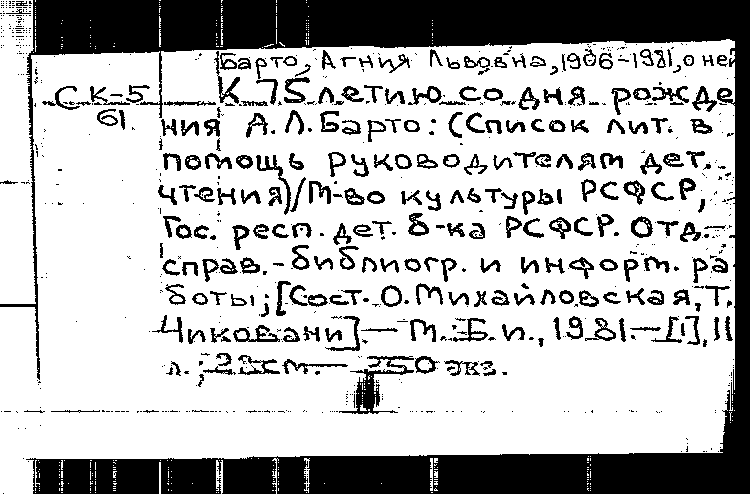 Барто, Агния Львовна, 1906-1981, о ней
СК-5 К 75летию со дня рожде
61 ния А.Л.Барто: (Список лит. в
помощь руководителям дет.
чтения)/М-во культуры РСФСР,
Гос. респ. дет. б-ка РСФСР. Отд.
справ.-библиогр. и информ. ра
боты; [Сост. О.Михайловская, Т.
Чиковани].— М.: Б. и., 1981.—[1], 11
л.; 28см.— 250 экз.